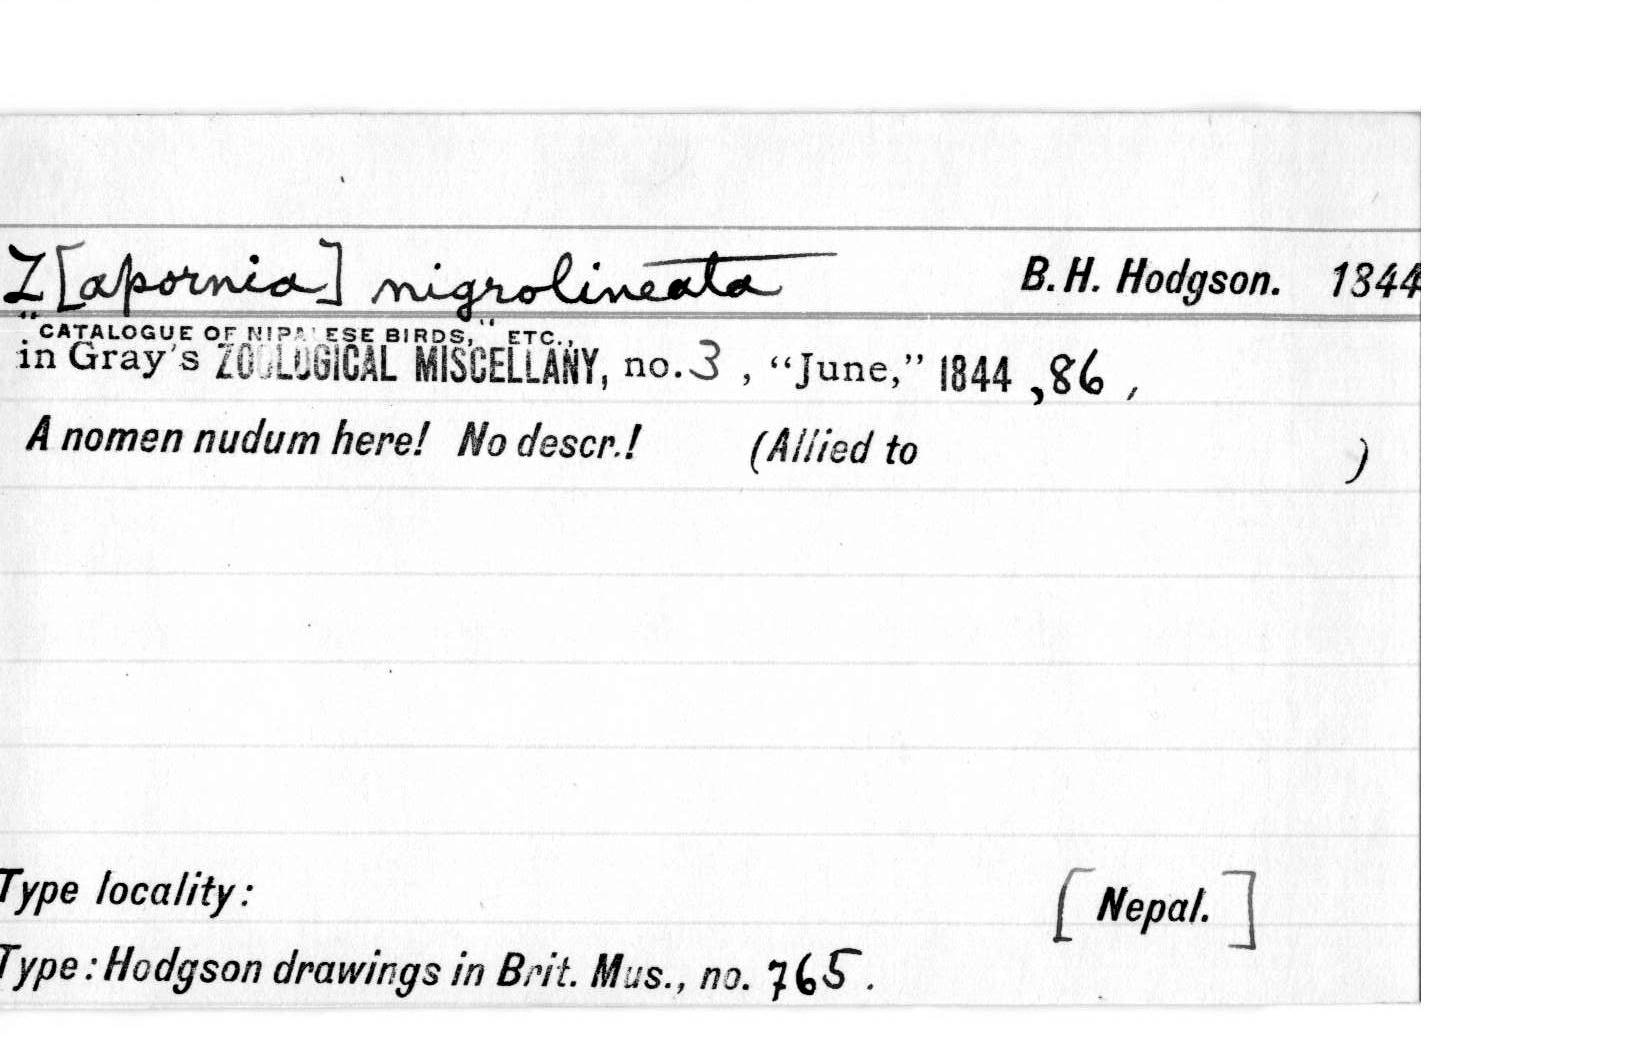 Z[apornia] nigrolineata B. H. Hodgson. 1844
"CATALOGUE OF NIPALESE BIRDS," ETC.,
in Gray's ZOOLOGICAL MISCELLANY, no. 3, "June," 1844, 86,
A nomen nudum here! No descr.! (Allied to )
Type locality: [Nepal.]
Type: Hodgson drawings in Brit. Mus., no. 765.